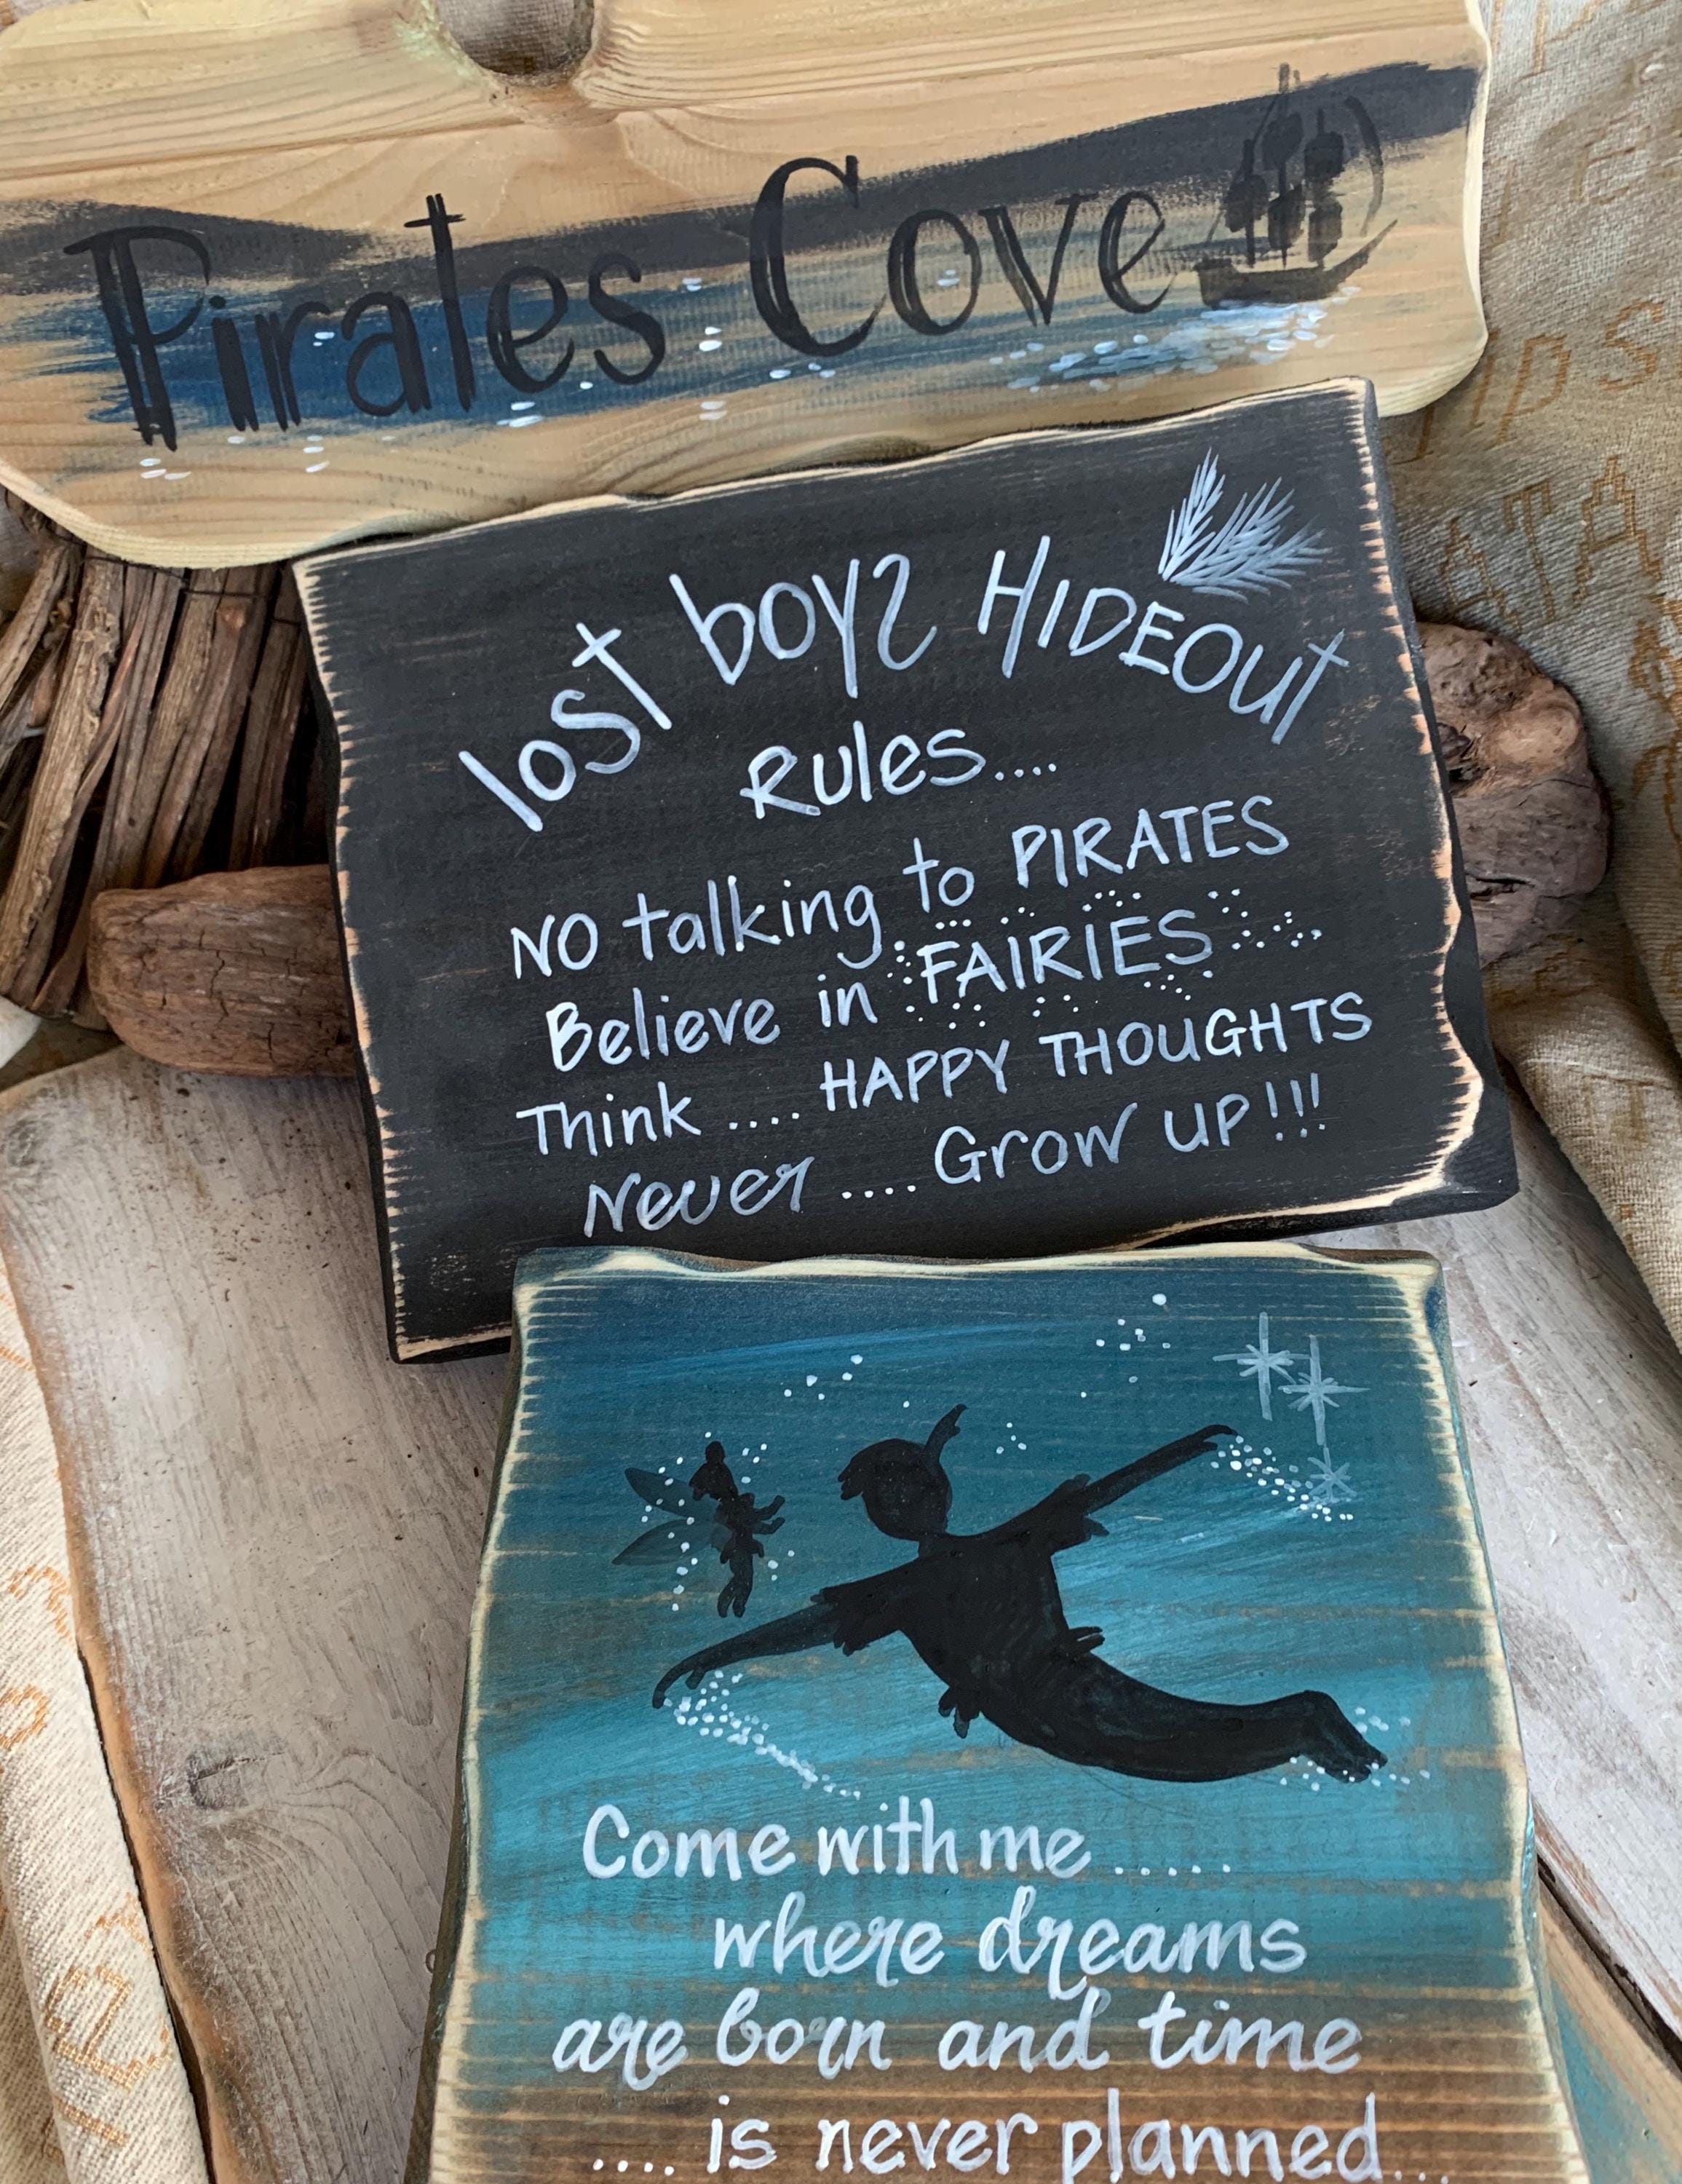 Pirates Cove
lost boys HIDEOUT
Rules....
NO talking to PIRATES
Believe in FAIRIES
Think .... HAPPY THOUGHTS
Never .... Grow UP!!!
Come with me .....
where dreams
are born and time
.... is never planned...